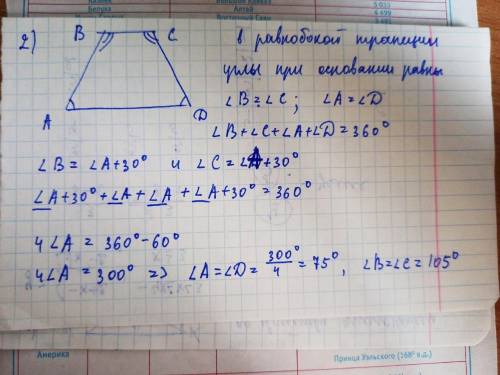 Канада
Белуха
Алтай
5 033
4 499
4 499
2)
B
C
A
D
в равнобокой трапеции
углы при основании равны
∠B = ∠C; ∠A = ∠D
∠B + ∠C + ∠A + ∠D = 360°
∠B = ∠A + 30° и ∠C = ∠A + 30°
∠A + 30° + ∠A + ∠A + ∠A + 30° = 360°
4∠A = 360° - 60°
4∠A = 300° => ∠A = ∠D = 300°/4 = 75°, ∠B = ∠C = 105°
Америка
Принца Уэльского (168° з.д.)